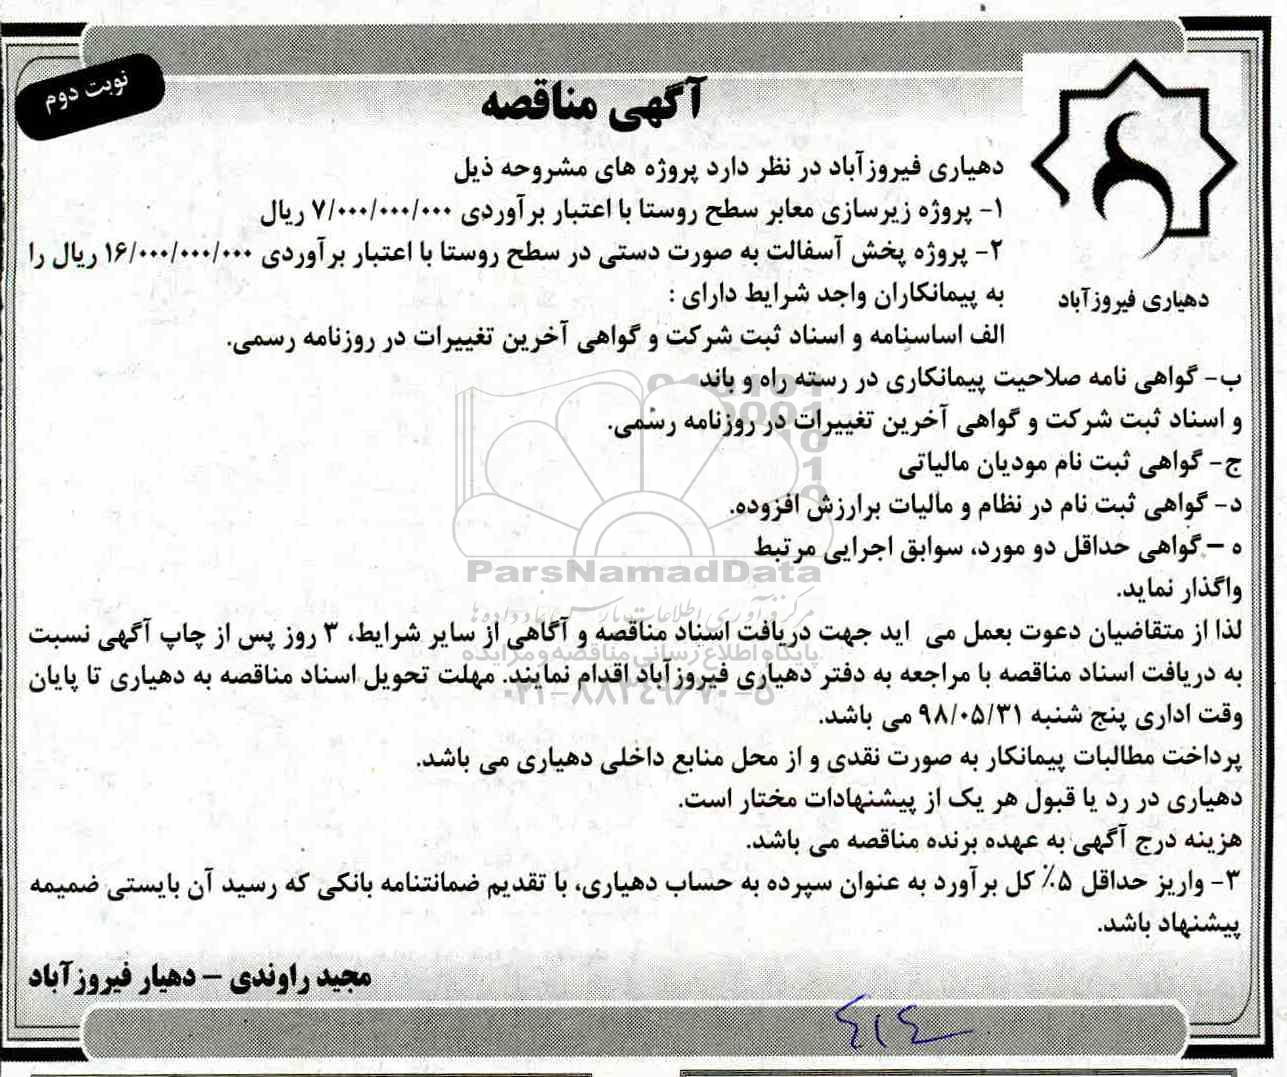 نوبت دوم
آگهی مناقصه
دهیاری فیروزآباد
دهیاری فیروزآباد در نظر دارد پروژه های مشروحه ذیل
۱- پروژه زیرسازی معابر سطح روستا با اعتبار برآوردی ۷/۰۰۰/۰۰۰/۰۰۰ ریال
۲- پروژه پخش آسفالت به صورت دستی در سطح روستا با اعتبار برآوردی ۱۶/۰۰۰/۰۰۰/۰۰۰ ریال را
به پیمانکاران واجد شرایط دارای :
الف اساسنامه و اسناد ثبت شرکت و گواهی آخرین تغییرات در روزنامه رسمی.
ب- گواهی نامه صلاحیت پیمانکاری در رسته راه و باند
و اسناد ثبت شرکت و گواهی آخرین تغییرات در روزنامه رسمی.
ج- گواهی ثبت نام مودیان مالیاتی
د- گواهی ثبت نام در نظام و مالیات برارزش افزوده.
ه – گواهی حداقل دو مورد، سوابق اجرایی مرتبط
واگذار نماید.
لذا از متقاضیان دعوت بعمل می اید جهت دریافت اسناد مناقصه و آگاهی از سایر شرایط، ۳ روز پس از چاپ آگهی نسبت
به دریافت اسناد مناقصه با مراجعه به دفتر دهیاری فیروزآباد اقدام نمایند. مهلت تحویل اسناد مناقصه به دهیاری تا پایان
وقت اداری پنج شنبه ۹۸/۰۵/۳۱ می باشد.
پرداخت مطالبات پیمانکار به صورت نقدی و از محل منابع داخلی دهیاری می باشد.
دهیاری در رد یا قبول هر یک از پیشنهادات مختار است.
هزینه درج آگهی به عهده برنده مناقصه می باشد.
۳- واریز حداقل ۵٪ کل برآورد به عنوان سپرده به حساب دهیاری، با تقدیم ضمانتنامه بانکی که رسید آن بایستی ضمیمه
پیشنهاد باشد.
مجید راوندی – دهیار فیروزآباد
ParsNamadData
پایگاه اطلاع رسانی مناقصه و مزایده
۰۲۱-۸۸۳۴۹۶۷۰-۵